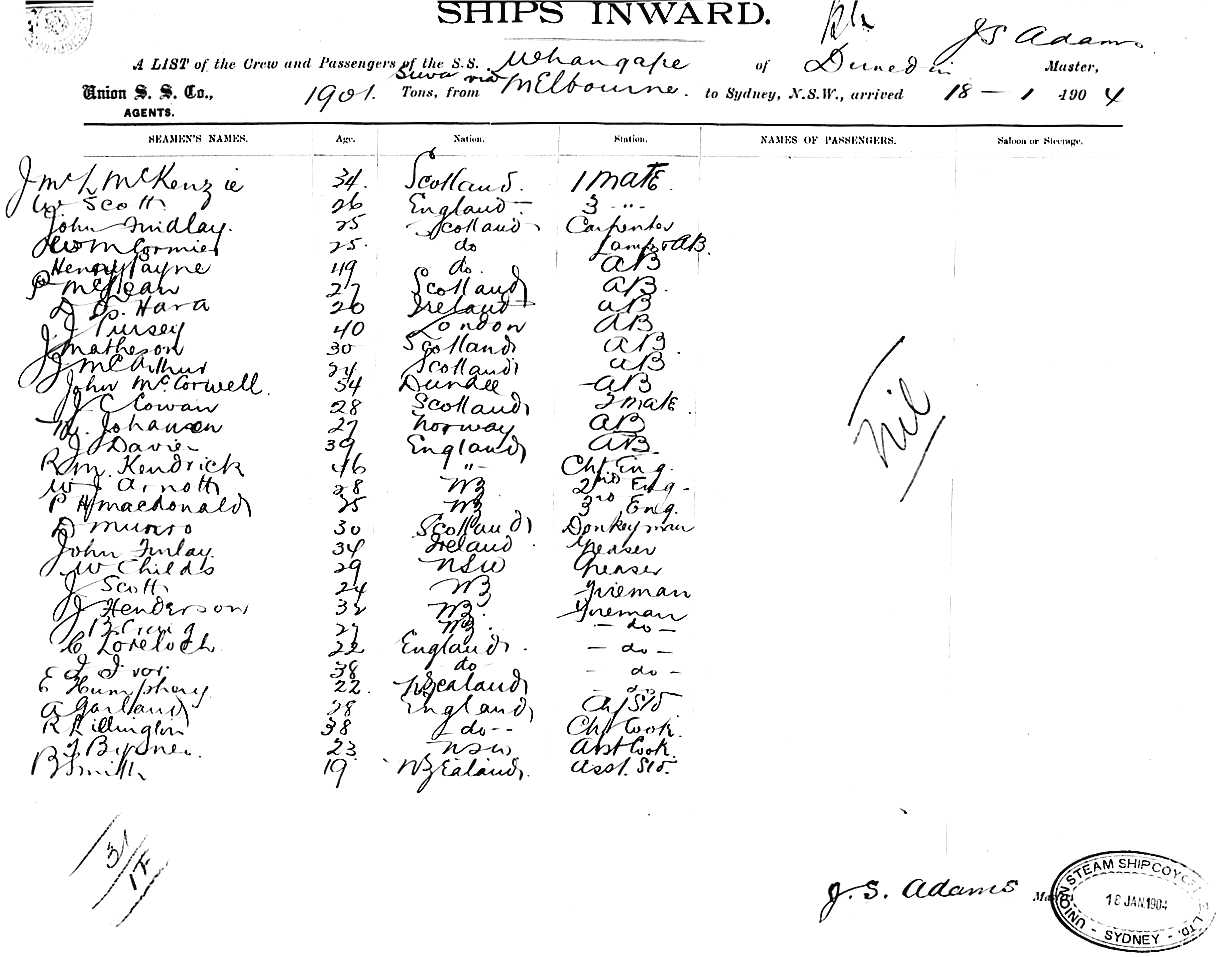 SHIPS INWARD.
J S Adams
A LIST of the Crew and Passengers of the S.S. Whangape of Dunedin Master,
Union S. S. Co., 1901. Tons, from Suva via Melbourne. to Sydney, N.S.W., arrived 18 - 1 1904
AGENTS.
SEAMEN'S NAMES. Age. Nation. Station. NAMES OF PASSENGERS. Saloon or Steerage.
J McL McKenzie 34. Scotland. 1 Mate
W Scott 26 England 3 "
John Findlay. 25 Scotland Carpenter
McCormier 25. do Lamps & AB.
Henry Payne 49 do. AB
P McLean 27 Scotland AB.
D O. Hara 26 Ireland AB
J. Pursey 40 London AB
J Matheson 30 Scotland AB.
J McArthur 24 Scotland AB
John McCorwell. 54 Dundee AB
J C Cowan 28 Scotland 2 Mate.
M. Johansen 27 Norway AB
J Davies 39 England AB.
R M. Kendrick 46 " Chf Eng.
W J Arnott 28 NZ 2nd Eng.
P H Macdonald 25 NZ 3rd Eng.
D Munro 30 Scotland Donkeyman
John Finlay. 34 Ireland. Greaser
W Childs 29 NSW Greaser
J Scott 24 NZ Fireman
J Henderson 32 NZ. Fireman
27 NZ. - do -
C Loreloch 22 England. - do -
E J Ivor. 38 do - - do -
E Humphrey. 22. N Zealand - do -
A Garland 28 England Chf Std
R Killington 38 do - - Chf Cook.
J 23 NSW Asst Cook.
B Smith 19 N Zealand. Asst. Std.
Nil
31/17
J. S. Adams Master
UNION STEAM SHIP COY OF N.Z. LTD. 18 JAN 1904 - SYDNEY -